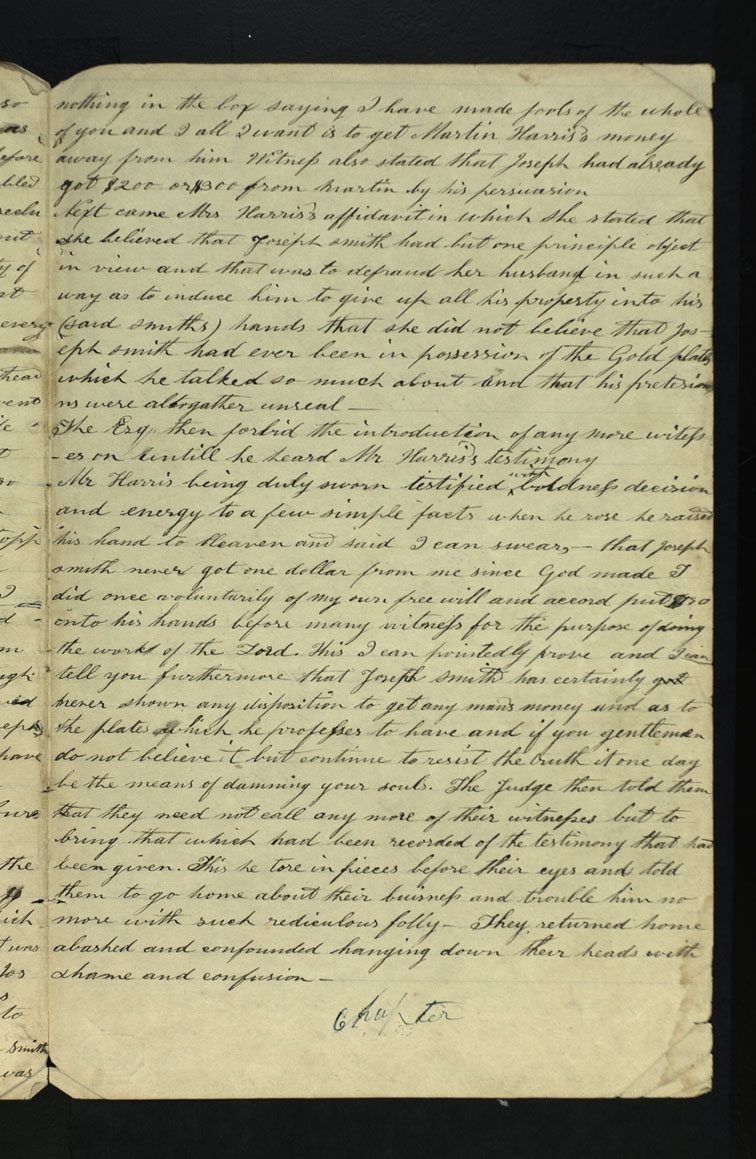 so
as
efore
bled
ty of
every
head
vent
so
topp
I
d -
m
ved
have
the
ich
t was
Jos
s
to
smith
was
nothing in the box saying I have made fools of the whole
of you and I all I want is to get Martin Harris's money
away from him Witness also stated that Joseph had already
got $200 or $300 from Martin by his persuasion
Next came Mrs Harris's affidavit in which she stated that
she believed that Joseph smith had but one principle object
in view and that was to defraud her husband in such a
way as to induce him to give up all his property into his
(said smiths) hands that she did not believe that Jos-
eph smith had ever been in possession of the Gold plates
which he talked so much about and that his pretesion
ns were altogather unreal —
The Esq. then forbid the introduction of any more witess
-es on untill he heard Mr Harris's testimony
Mr Harris being duly sworn testified with boldness decision
and energy to a few simple facts when he rose he raised
his hand to Heaven and said I can swear, — that Joseph
smith never got one dollar from me since God made I
did once voluntarily of my own free will and accord put $50
onto his hands before many witness for the purpose of doing
the works of the Lord. This I can pointedly prove and I can
tell you furthermore that Joseph smith has certainly
never shown any disposition to get any mans money and as to
the plates which he professes to have and if you gentlemen
do not believe it but continue to resist the truth it one day
be the means of damning your souls. The Judge then told them
that they need not call any more of their witnesses but to
bring that which had been recorded of the testimony that had
been given. This he tore in pieces before their eyes and told
them to go home about their buisness and trouble him no
more with such rediculous folly — They returned home
abashed and confounded hanging down their heads with
shame and confusion —
Chapter